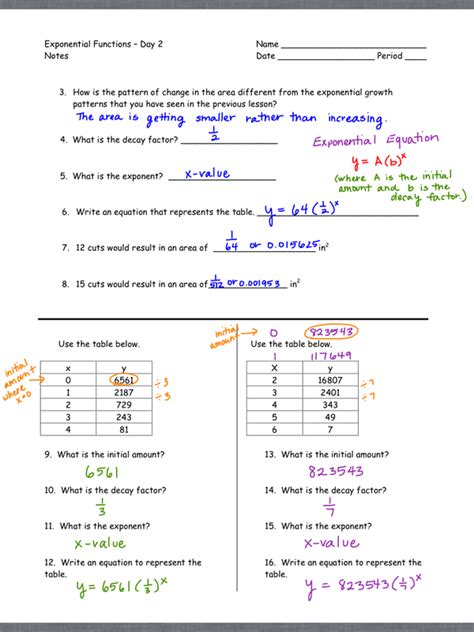 Exponential Functions – Day 2 Name ____________
Notes Date ____________ Period ____
3. How is the pattern of change in the area different from the exponential growth
patterns that you have seen in the previous lesson?
The area is getting smaller rather than increasing.
4. What is the decay factor? 1/2
Exponential Equation
y = A(b)^x
(where A is the initial
amount and b is the
decay factor.)
5. What is the exponent? x-value
6. Write an equation that represents the table. y = 64(1/2)^x
7. 12 cuts would result in an area of 1/64 or 0.015625 in²
8. 15 cuts would result in an area of 1/512 or 0.001953 in²
Use the table below.
initial
amount
where
x=0
x y
0 6561
1 2187
2 729
3 243
4 81
÷3
÷3
9. What is the initial amount?
6561
10. What is the decay factor?
1/3
11. What is the exponent?
x-value
12. Write an equation to represent the
table.
y = 6561(1/3)^x
initial
amount
0 823543
Use the table below.
1 117649
X y
2 16807
3 2401
4 343
5 49
6 7
÷7
÷7
13. What is the initial amount?
823543
14. What is the decay factor?
1/7
15. What is the exponent?
x-value
16. Write an equation to represent the
table.
y = 823543(1/7)^x